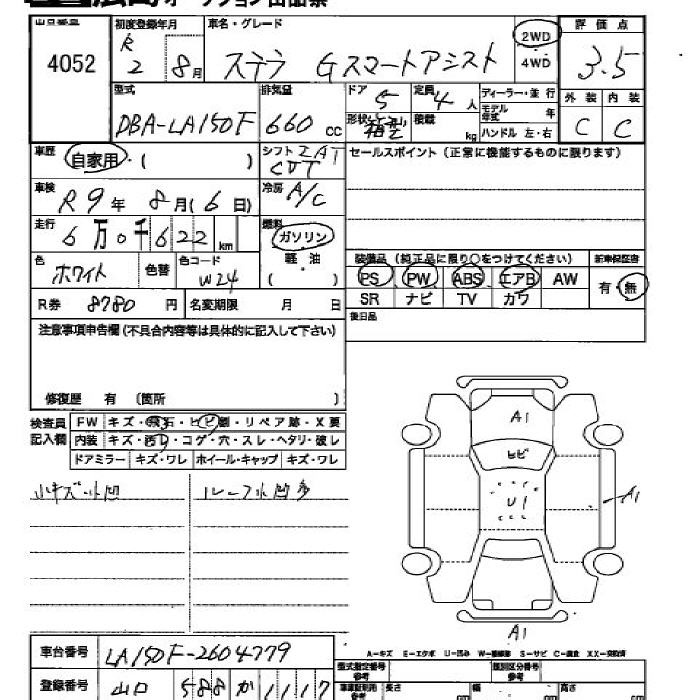 出品番号 4052
初度登録年月 R 2 8月
車名・グレード ステラ Gスマートアシスト
2WD
4WD
評価点 3.5
型式 DBA-LA150F
排気量 660 cc
ドア 5
定員 4人
ディーラー・並行
モデル年式 年
形状 箱型
積載 kg
ハンドル 左・右
外装 C
内装 C
車歴 自家用・( )
シフト IAT CVT
セールスポイント(正常に機能するものに限ります)
車検 R9年 8月(6日)
冷房 A/C
走行 6万0千622km
燃料 ガソリン
軽・油
( )
色 ホワイト
色替
色コード W24
装備品(純正品に限り○をつけてください)
新車保証書
PS PW ABS エアB AW
有・無
SR ナビ TV カワ
R券 8780円
名変期限 月 日
後日品
注意事項申告欄(不具合内容等は具体的に記入して下さい)
修復歴 有 〔箇所 〕
検査員記入欄
FW キズ・飛石・ヒビ割・リペア跡・X要
内装 キズ・汚れ・コゲ・穴・スレ・ヘタリ・破レ
ドアミラー キズ・ワレ ホイール・キャップ キズ・ワレ
小キズ小凹
ルーフ小凹多
A1
ヒビ
U1
A1
A1
A-キズ E-エクボ U-凹み
S-サビ C-腐食 XX-交換済
車台番号 LA150F-2604779
型式指定番号 参考
類別区分番号 参考
登録番号 山口 588 か 1117
長さ cm
幅 cm
高さ cm